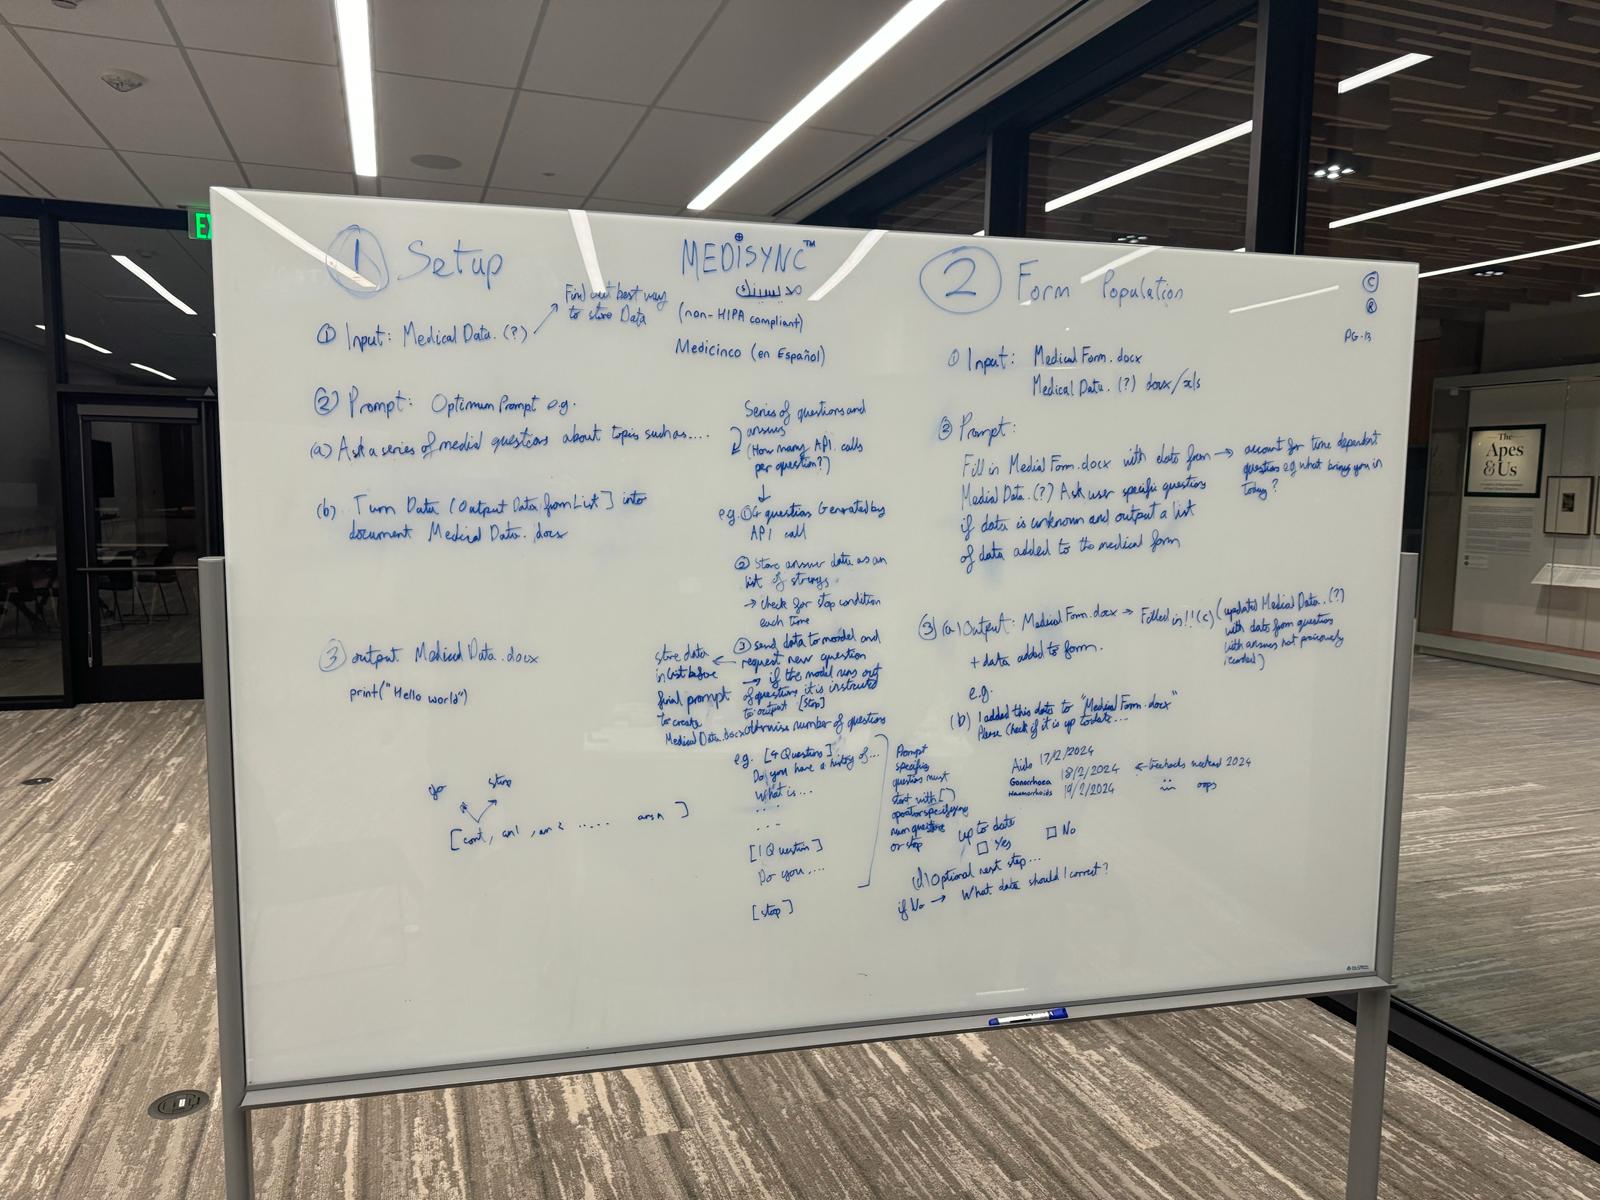 EX
1 Setup
① Input: Medical Data. (?)
Find out best way
to store Data
② Prompt: Optimum Prompt e.g.
(a) Ask a series of medial questions about topics such as....
(b) Turn Data [Output Data from List] into
document Medical Data. docx
③ output Medical Data.docx
print("Hello world")
go
stop
[cont, an1, an2 ..... ansn ]
MEDISYNC™
مديسينك
(non-HIPA compliant)
Medicinco (en Español)
Series of questions and
answers
(How many API calls
per question?)
e.g. ① Q questions Generated by
API call
② Store answer data as an
list of strings
→ check for stop condition
each time
③ send data to model and
request new question
→ if the model runs out
of questions it is instructed
to output [Stop]
otherwise number of questions
store data
in list before
final prompt
to create
Medical Data.docx
e.g. [4 Questions]
Do you have a history of...
What is...
....
...
[1 Question]
Do you....
[stop]
Prompt
specific
question must
start with [ ]
operator specifying
num questions
or stop
2 Form Population
C
R
PG-13
① Input: Medical Form.docx
Medical Data. (?) docx/xls
② Prompt:
Fill in Medical Form.docx with data from
Medical Data.(?) Ask user specific questions
if data is unknown and output a list
of data added to the medical form
→ account for time dependent
question e.g what brings you in
today?
③ (a) Output: Medical Form.docx → Filled in!! (c) (updated Medical Data.(?)
with data from questions
with answers not previously
recorded)
+ data added to form.
e.g.
(b) I added this data to "Medical Form.docx"
Please check if it is up to date...
Aids 17/2/2024
Gonorrhoea 18/2/2024
Haemorrhoids 19/2/2024
← treehacks weekend 2024
oops
up to date
□ Yes
□ No
(d) Optional next step...
if No → What data should I correct?
The
Apes
& Us